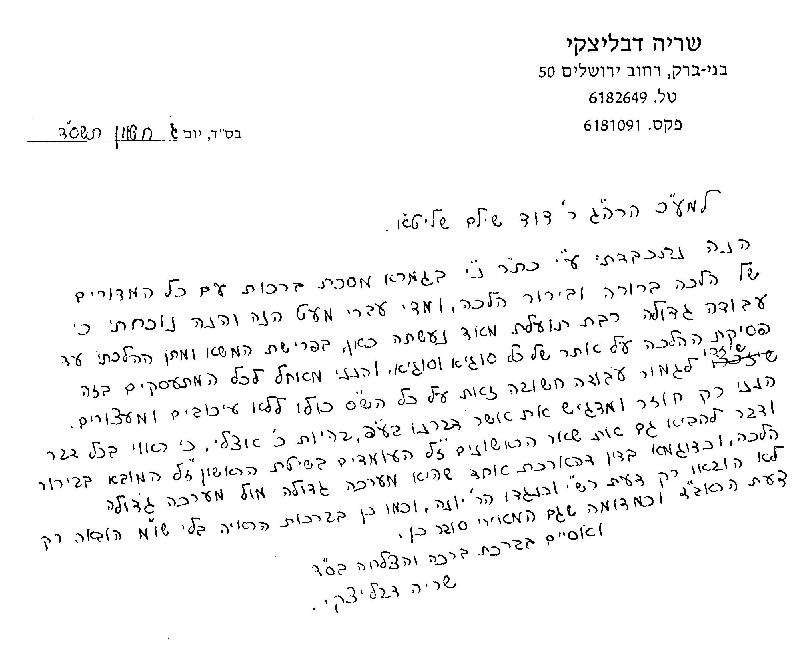 שריה דבליצקי
בני-ברק, רחוב ירושלים 50
טל. 6182649
פקס. 6181091
בס"ד, יום ג חשון תשס"ד
למע"כ הרה"ג ר' דוד שליט"א.
הנה נתכבדתי ע"י כת"ר ני' בגמרא מסכת ברכות עם כל המדורים
של הלכה ברורה ובירור הלכה, ומדי עברי מעט הנה והנה נוכחתי כי
עבודה גדולה רבת תועלת מאוד נעשתה כאן, בפרישת המשא ומתן ההלכתי עד
פסיקת ההלכה על אתר של כל סוגיא וסוגיא, והנני מאחל לכל המתעסקים בזה
שיזכו לגמור עבודה חשובה זאת על כל הש"ס כולו ללא עיכובים ומעצורים.
הנני רק חוזר ומדגיש את אשר דברנו בע"פ, בהיות כ' אצלי, כי ראוי בכל דבר
ודבר להביא גם את שאר הראשונים ז"ל העומדים בשיטת הראשון ז"ל המובא בבירור
הלכה, וכדוגמא בדין דהארכת אחד שהיא מערכה גדולה מול מערכה גדולה
לא הובאו רק דעת רש"י וכנגדו הר' יונה, וכמו כן בברכות הראיה בלי שו"מ הובאה רק
דעת הראב"ד וכמדומה שגם המאירי סובר כן.
ואסיים בברכת ברכה והצלחה בס"ד
שריה דבליצקי.